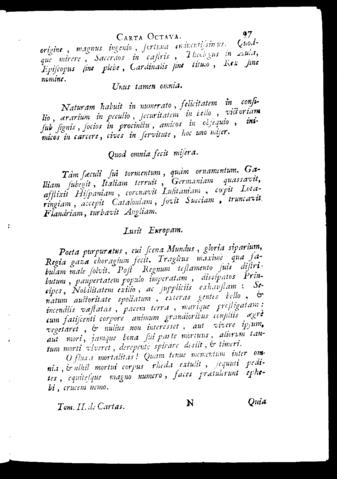 CARTA OCTAVA. 97
origine, magnus ingenio, fortuna eminentissimus. Quod-
que mirere, Sacerdos in castris, Theologus in Aula,
Episcopus sine plebe, Cardinalis sine titulo, Rex sine
nomine.
Unus tamen omnia.
Naturam habuit in numerato, felicitatem in consi-
lio, ærarium in peculio, securitatem in bello, victoriam
sub signis, socios in procinctu, amicos in obsequio, ini-
micos in carcere, cives in servitute, hoc uno miser.
Quod omnia fecit misera.
Tam sæculi sui tormentum, quàm ornamentum. Ga-
lliam subegit, Italiam terruit, Germaniam quassavit,
afflixit Hispaniam, coronavit Lusitaniam, cupit Lota-
ringiam, accepit Cataloniam, fovit Sueciam, truncavit
Flandriam, turbavit Angliam.
Lusit Europam.
Poeta purpuratus, cui scena Mundus, gloria siparium,
Regia gaza choragium fecit. Tragicus maximè quà fa-
bulam malè solvit. Post Regnum testamento suis distri-
butum, paupertatem populo imperatam, dissipatos Prin-
cipes, Nobilitatem exilio, ac suppliciis exhaustam: Se-
natum auctoritate spoliatum, exteras gentes bello, &
incendiis vastatas, pacem terra, marique prostigatam:
cum fatiscenti corpore animum grandioribus consiliis ægrè
vegetaret, & nullius non interesset, aut vivere ipsum,
aut mori, jamque bona sui parte mortuus, aliorum tan-
tum morti viveret, derepente spirare desiit, & timeri.
O fluxa mortalitas! Quàm tenue momentum inter om-
nia, & nihil mortui corpus rheda extulit, sequuti pedi-
tes, equitesque magno numero, faces prætulerunt ephe-
bi, crucem nemo.
Tom. II. de Cartas. N Quia